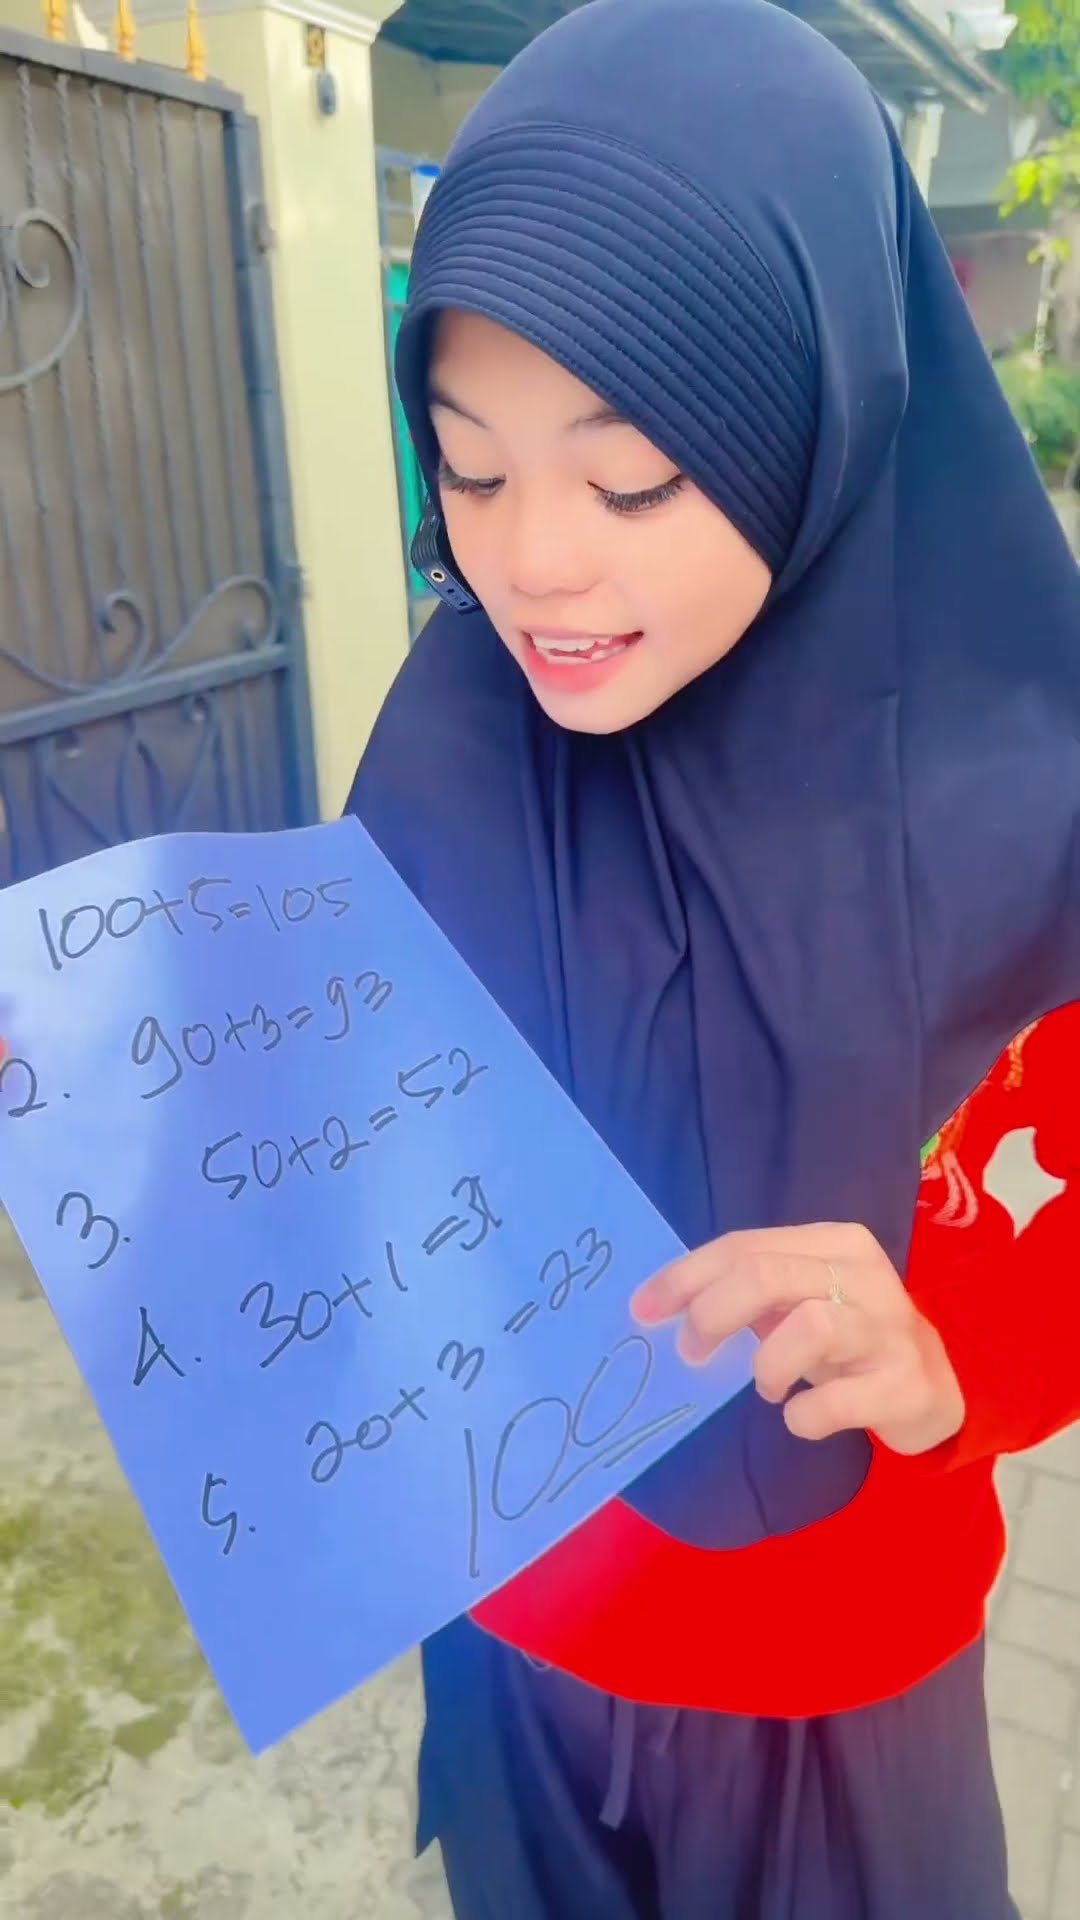 100+5=105
2. 90+3=93
3. 50+2=52
4. 30+1=31
5. 20+3=23
100